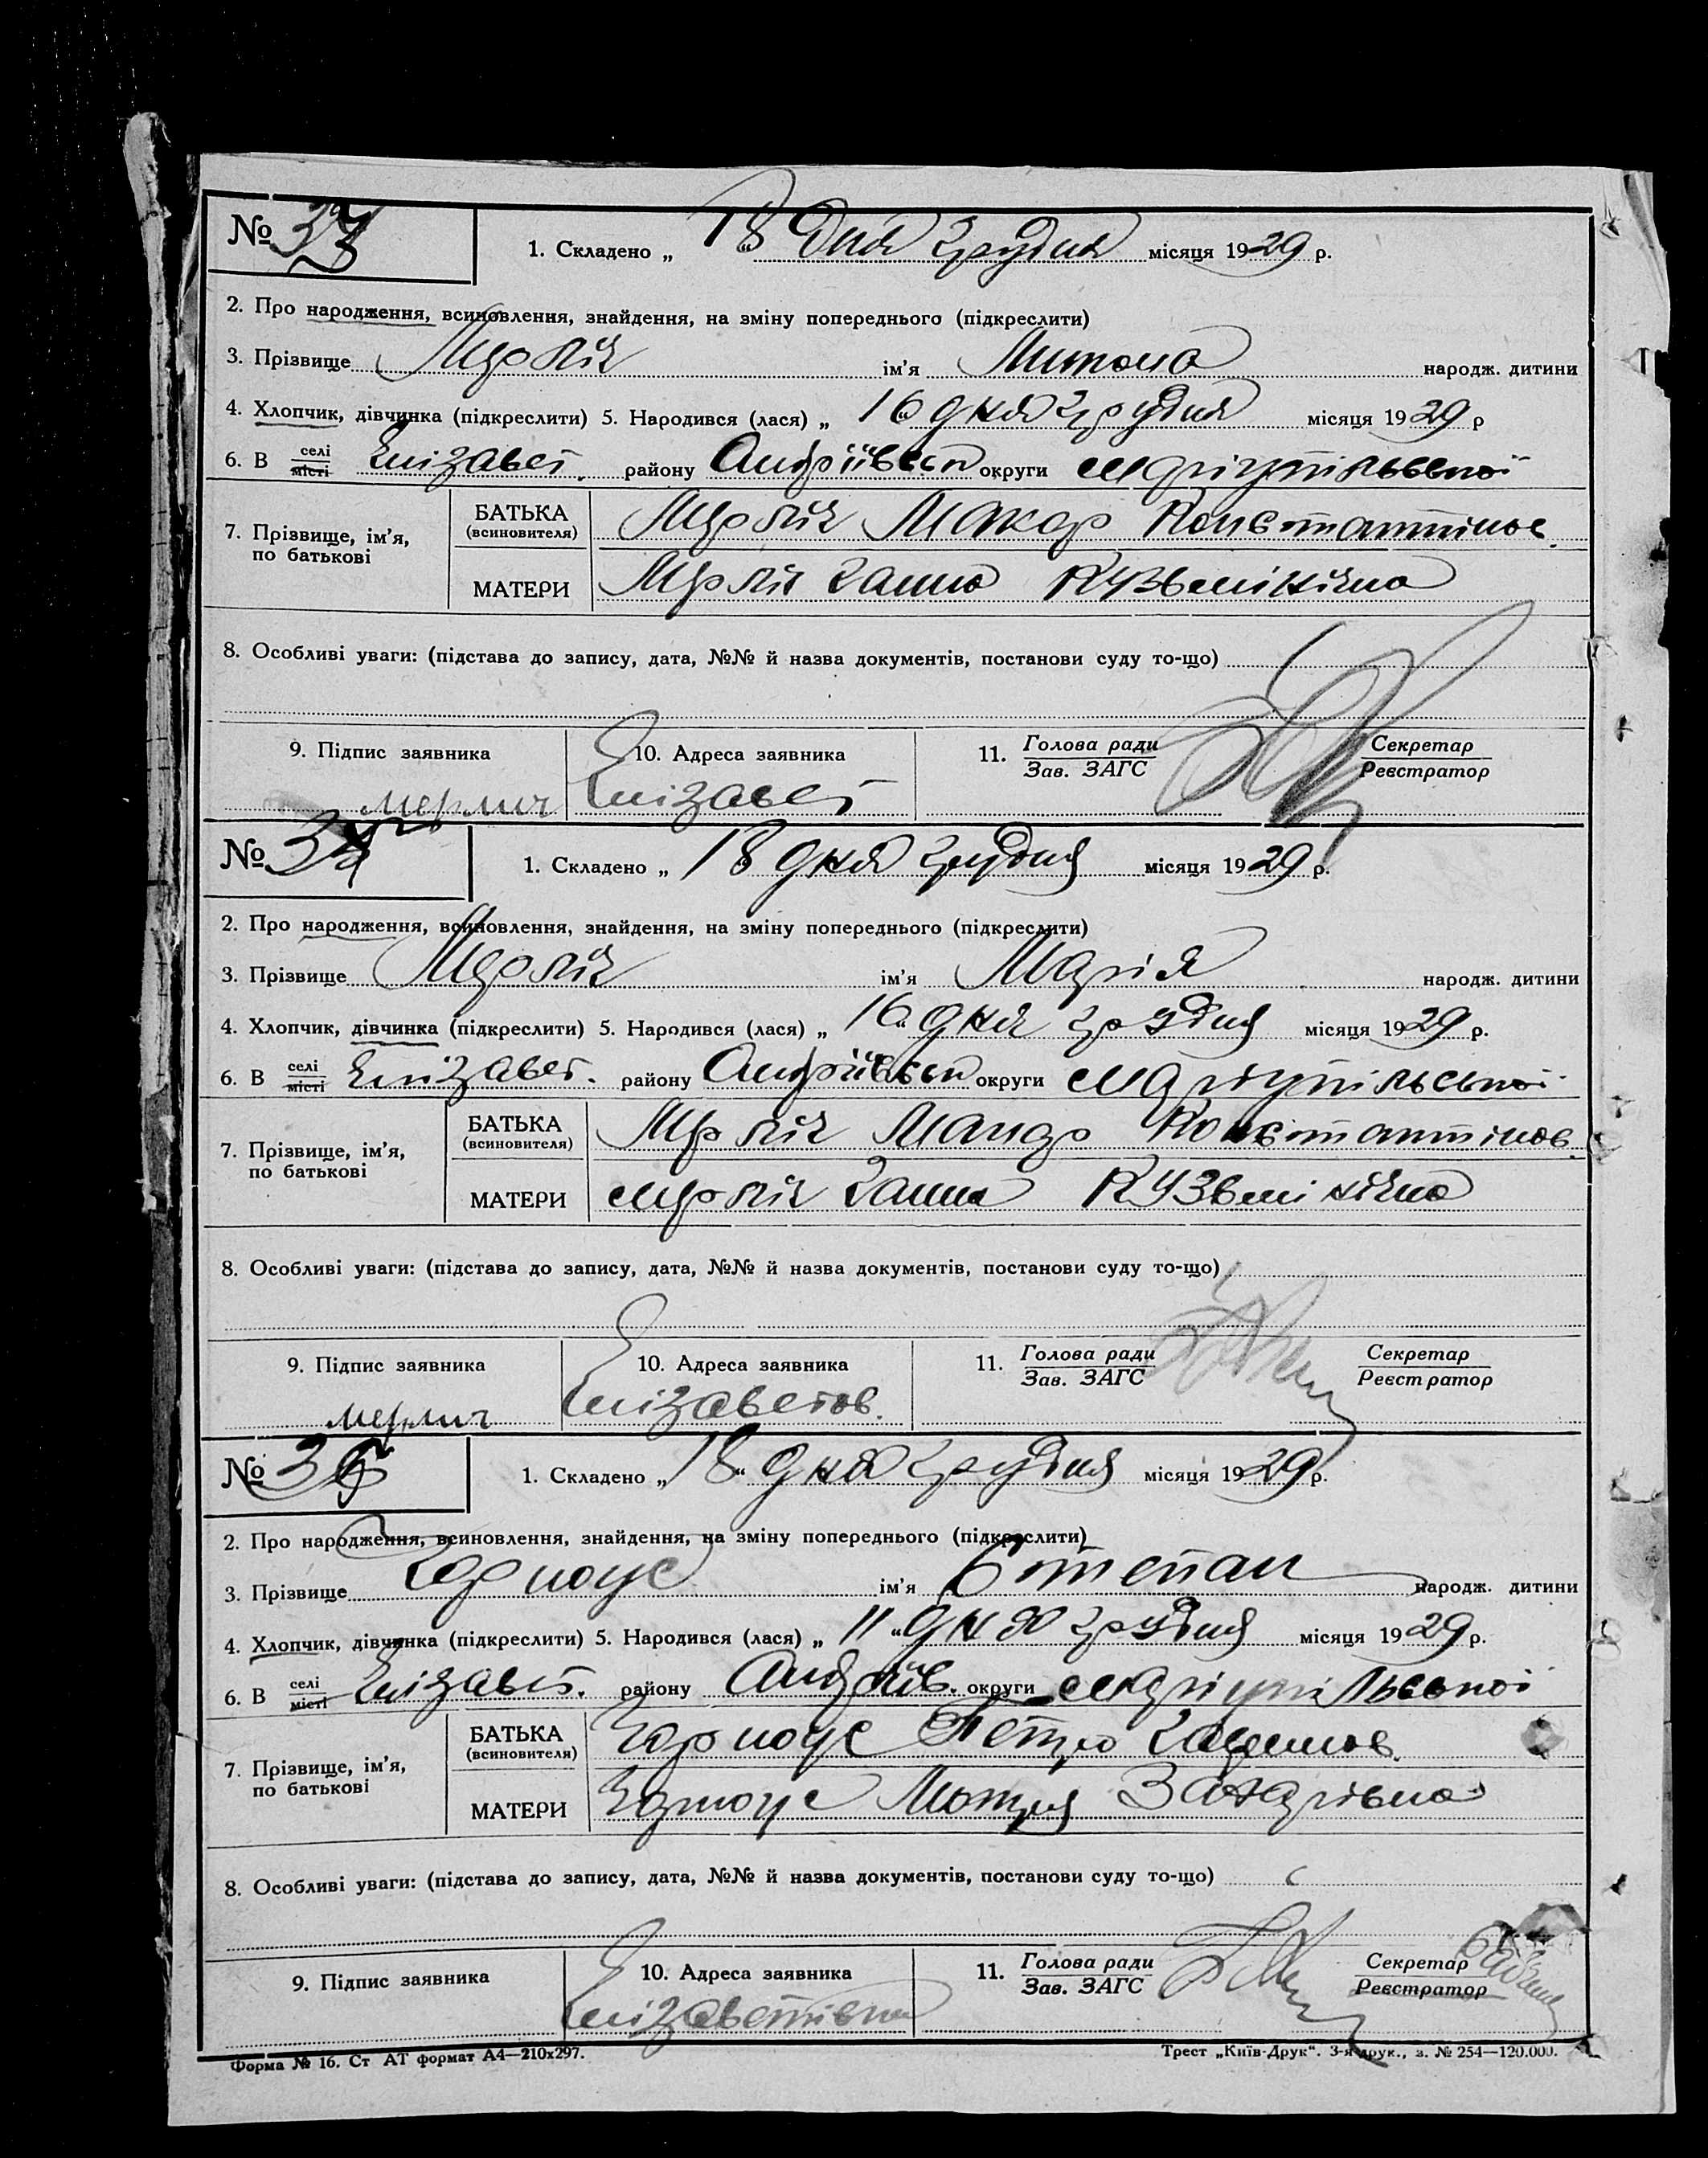 № 33
1. Складено „ 18 дня грудня місяця 1929 р.
2. Про народження, всиновлення, знайдення, на зміну попереднього (підкреслити)
3. Прізвище Мерліч ім'я народж. дитини
4. Хлопчик, дівчинка (підкреслити) 5. Народився (лася) „ 16 дня грудня місяця 1929 р
6. В селі місті Єлізавет. району Андріївськ округи Маріупільської
7. Прізвище, ім'я, по батькові БАТЬКА (всиновителя) Мерліч Макар Константінов.
МАТЕРИ Мерліч Ганна Кузьмінічна
8. Особливі уваги: (підстава до запису, дата, №№ й назва документів, постанови суду то-що)
9. Підпис заявника 10. Адреса заявника 11. Голова ради Зав. ЗАГС Секретар Реєстратор
мерлич Єлізавет
№ 34
1. Складено „ 18 дня грудня місяця 1929 р.
2. Про народження, всиновлення, знайдення, на зміну попереднього (підкреслити)
3. Прізвище Мерліч ім'я Марія народж. дитини
4. Хлопчик, дівчинка (підкреслити) 5. Народився (лася) „ 16 дня грудня місяця 1929 р.
6. В селі місті Єлізавет. району Андріївськ округи Маріупільської
7. Прізвище, ім'я, по батькові БАТЬКА (всиновителя) Мерліч Макар Константінов.
МАТЕРИ Мерліч Ганна Кузьмінічна
8. Особливі уваги: (підстава до запису, дата, №№ й назва документів, постанови суду то-що)
9. Підпис заявника 10. Адреса заявника 11. Голова ради Зав. ЗАГС Секретар Реєстратор
мерлич Єлізаветов.
№ 35
1. Складено „ 18 дня грудня місяця 1929 р.
2. Про народження, всиновлення, знайдення, на зміну попереднього (підкреслити)
3. Прізвище Чорноус ім'я Степан народж. дитини
4. Хлопчик, дівчинка (підкреслити) 5. Народився (лася) „ 11 дня грудня місяця 1929 р.
6. В селі місті Єлізавет. району Андріїв. округи Маріупільської
7. Прізвище, ім'я, по батькові БАТЬКА (всиновителя) Чорноус Петро
МАТЕРИ Чорноус Мотря Захарівна
8. Особливі уваги: (підстава до запису, дата, №№ й назва документів, постанови суду то-що)
9. Підпис заявника 10. Адреса заявника 11. Голова ради Зав. ЗАГС Секретар Реєстратор
Форма № 16. Ст АТ формат А4—210х297. Трест „Київ-Друк“. 3-я друк., з. № 254—120.000.